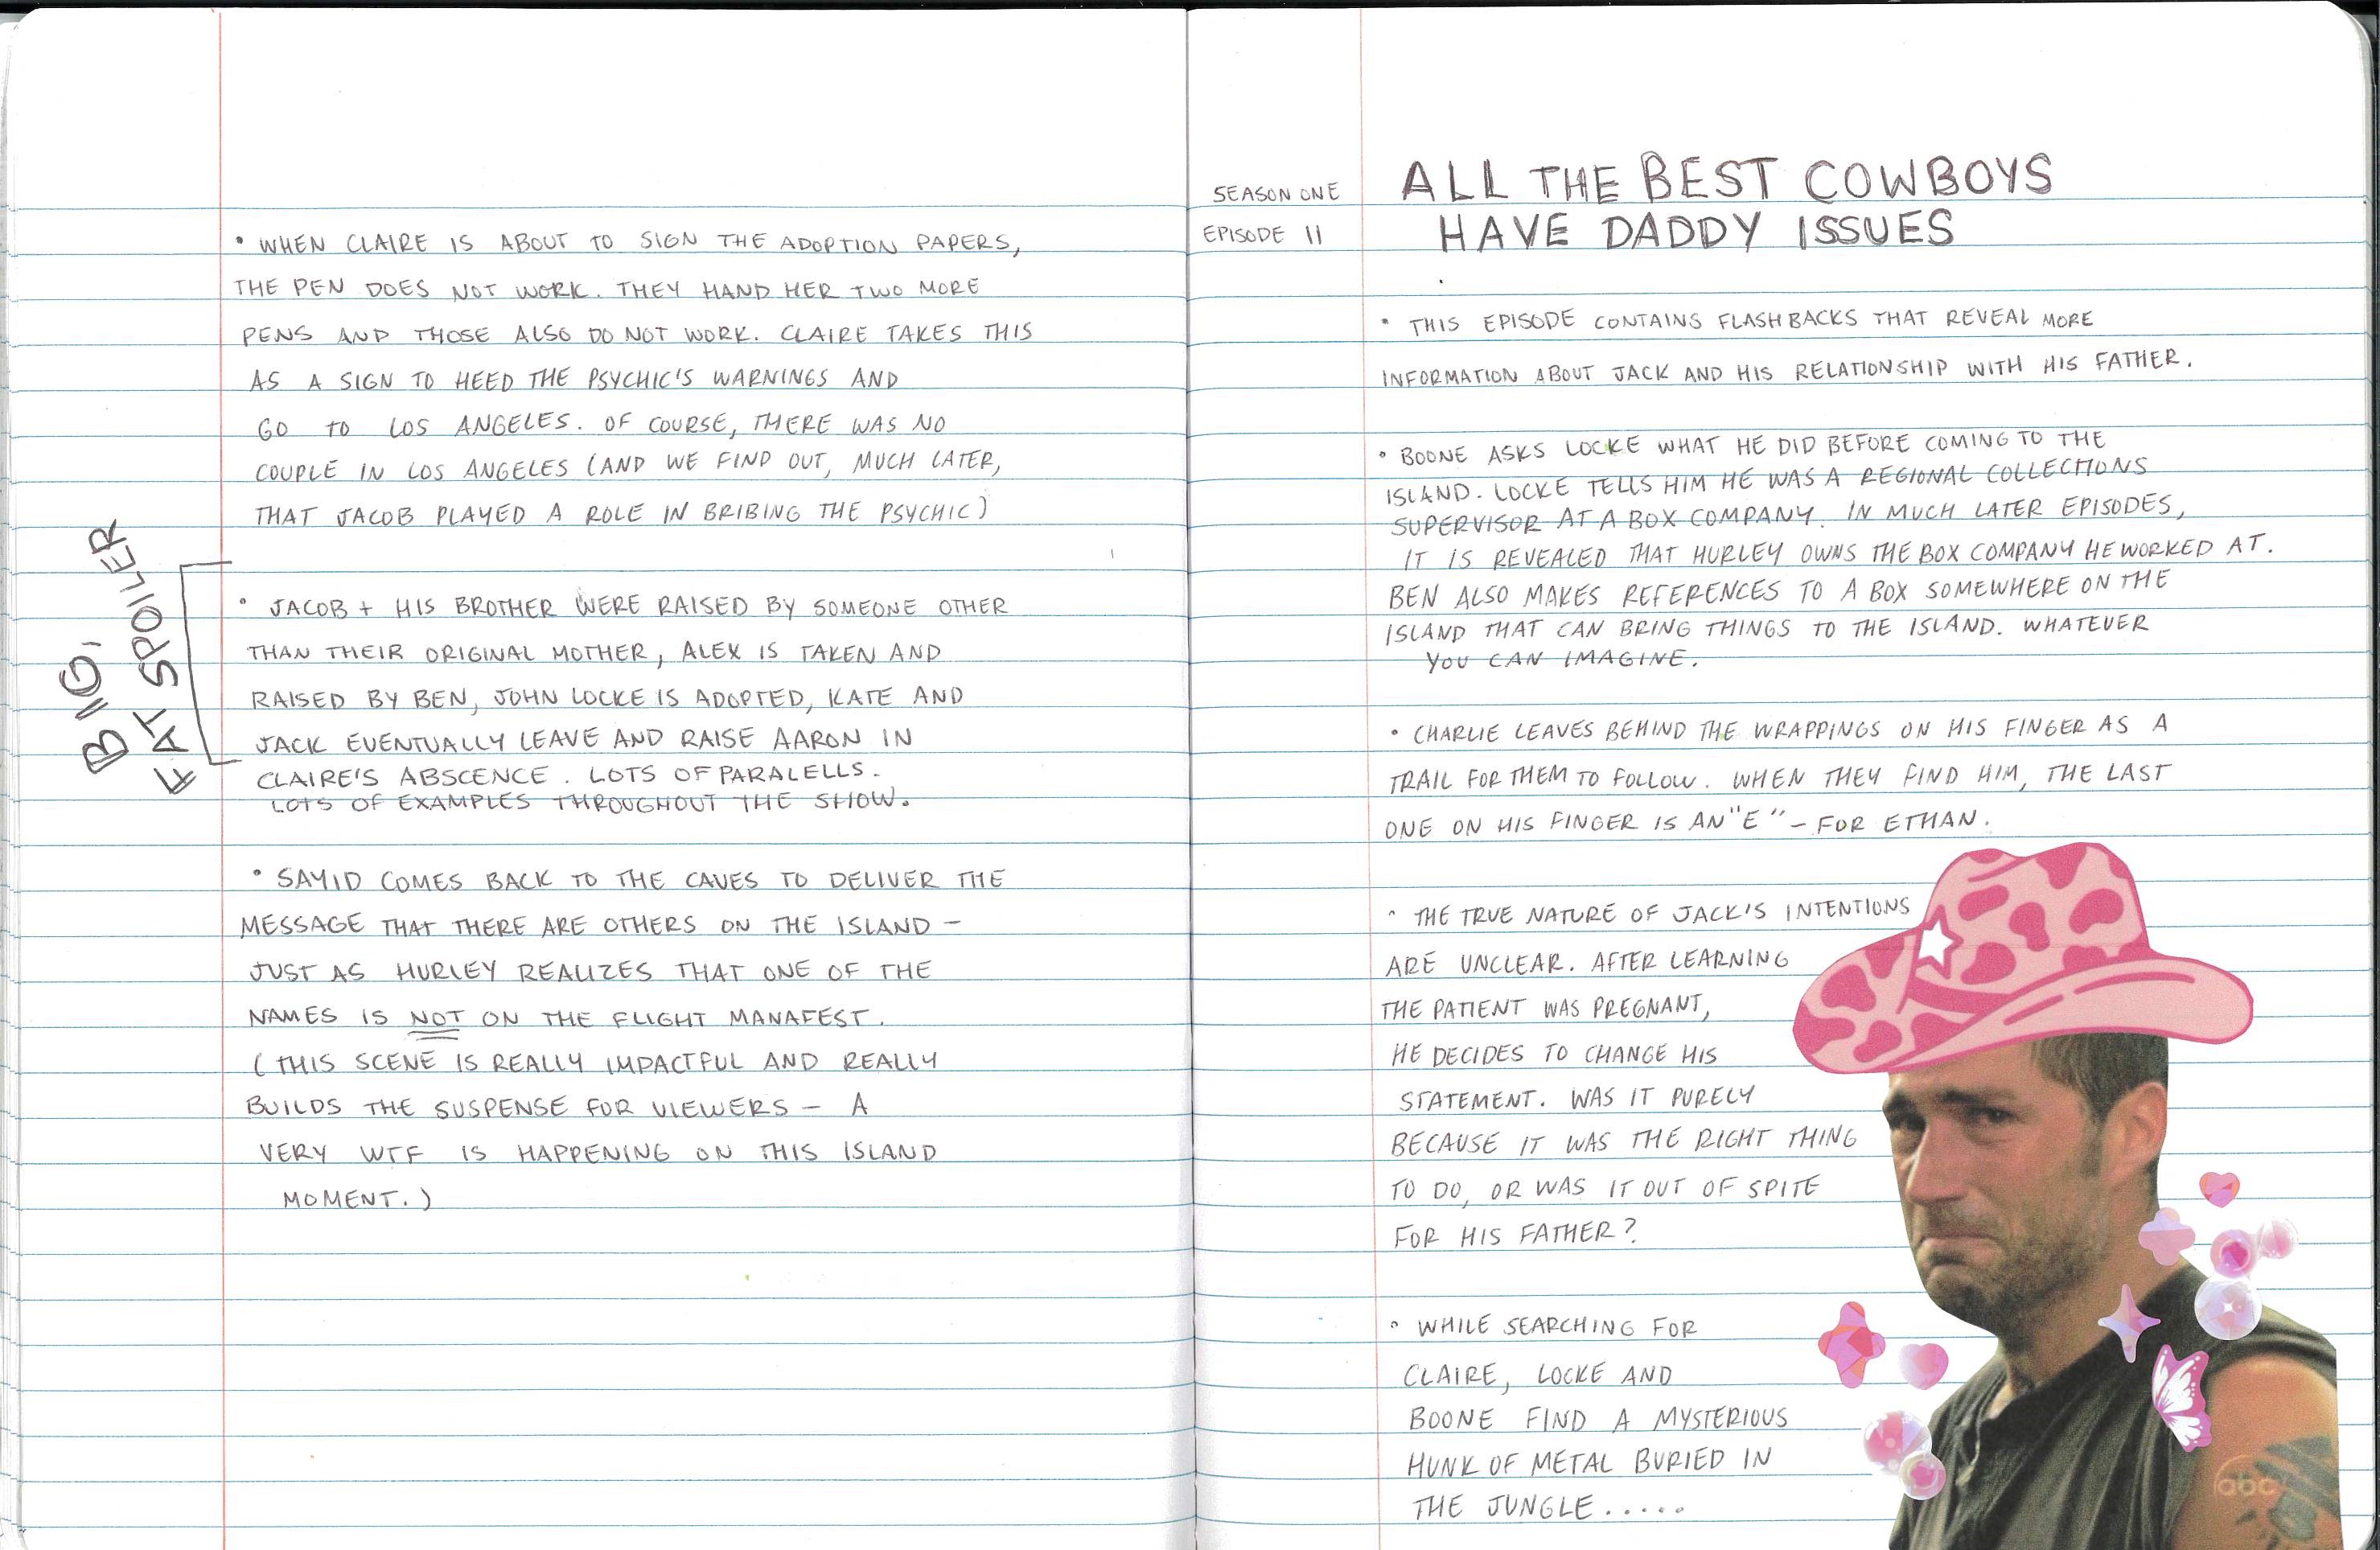 • WHEN CLAIRE IS ABOUT TO SIGN THE ADOPTION PAPERS,
THE PEN DOES NOT WORK. THEY HAND HER TWO MORE
PENS AND THOSE ALSO DO NOT WORK. CLAIRE TAKES THIS
AS A SIGN TO HEED THE PSYCHIC'S WARNINGS AND
GO TO LOS ANGELES. OF COURSE, THERE WAS NO
COUPLE IN LOS ANGELES (AND WE FIND OUT, MUCH LATER,
THAT JACOB PLAYED A ROLE IN BRIBING THE PSYCHIC)
BIIG,
FAT SPOILER
• JACOB + HIS BROTHER WERE RAISED BY SOMEONE OTHER
THAN THEIR ORIGINAL MOTHER, ALEX IS TAKEN AND
RAISED BY BEN, JOHN LOCKE IS ADOPTED, KATE AND
JACK EVENTUALLY LEAVE AND RAISE AARON IN
CLAIRE'S ABSCENCE. LOTS OF PARALELLS.
LOTS OF EXAMPLES THROUGHOUT THE SHOW.
• SAYID COMES BACK TO THE CAVES TO DELIVER THE
MESSAGE THAT THERE ARE OTHERS ON THE ISLAND –
JUST AS HURLEY REALIZES THAT ONE OF THE
NAMES IS NOT ON THE FLIGHT MANAFEST.
(THIS SCENE IS REALLY IMPACTFUL AND REALLY
BUILDS THE SUSPENSE FOR VIEWERS – A
VERY WTF IS HAPPENING ON THIS ISLAND
MOMENT.)
SEASON ONE
EPISODE 11
ALL THE BEST COWBOYS
HAVE DADDY ISSUES
• THIS EPISODE CONTAINS FLASHBACKS THAT REVEAL MORE
INFORMATION ABOUT JACK AND HIS RELATIONSHIP WITH HIS FATHER.
• BOONE ASKS LOCKE WHAT HE DID BEFORE COMING TO THE
ISLAND. LOCKE TELLS HIM HE WAS A REGIONAL COLLECTIONS
SUPERVISOR AT A BOX COMPANY. IN MUCH LATER EPISODES,
IT IS REVEALED THAT HURLEY OWNS THE BOX COMPANY HE WORKED AT.
BEN ALSO MAKES REFERENCES TO A BOX SOMEWHERE ON THE
ISLAND THAT CAN BRING THINGS TO THE ISLAND. WHATEVER
YOU CAN IMAGINE.
• CHARLIE LEAVES BEHIND THE WRAPPINGS ON HIS FINGER AS A
TRAIL FOR THEM TO FOLLOW. WHEN THEY FIND HIM, THE LAST
ONE ON HIS FINGER IS AN "E" – FOR ETHAN.
• THE TRUE NATURE OF JACK'S INTENTIONS
ARE UNCLEAR. AFTER LEARNING
THE PATIENT WAS PREGNANT,
HE DECIDES TO CHANGE HIS
STATEMENT. WAS IT PURELY
BECAUSE IT WAS THE RIGHT THING
TO DO, OR WAS IT OUT OF SPITE
FOR HIS FATHER?
• WHILE SEARCHING FOR
CLAIRE, LOCKE AND
BOONE FIND A MYSTERIOUS
HUNK OF METAL BURIED IN
THE JUNGLE.....
abc